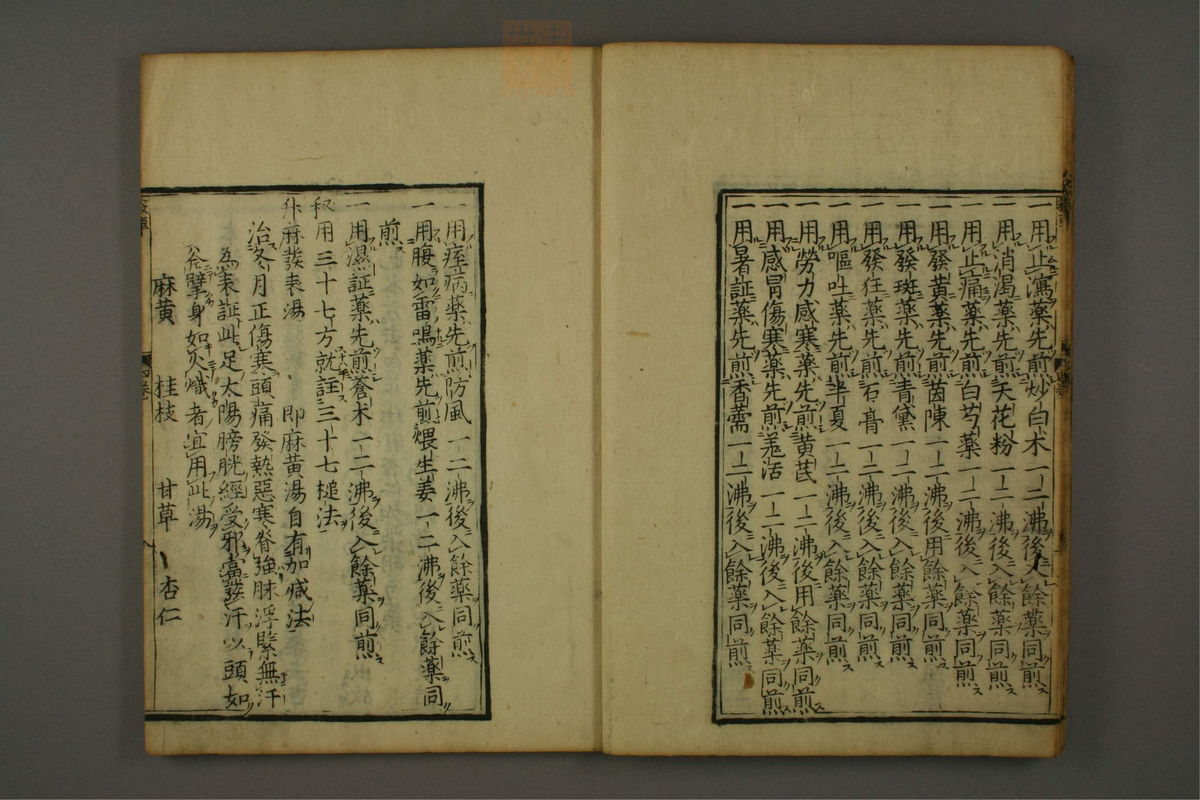 一用止瀉藥先煎炒白朮一二沸後入餘藥同煎
一用消渴藥先煎天花粉一二沸後入餘藥同煎
一用止痛藥先煎白芍藥一二沸後入餘藥同煎
一用發黃藥先煎茵陳一二沸後用餘藥同煎
一用發斑藥先煎青黛一二沸後入餘藥同煎
一用發狂藥先煎石膏一二沸後入餘藥同煎
一用嘔吐藥先煎半夏一二沸後入餘藥同煎
一用勞力感寒藥先煎黃芪一二沸後用餘藥同煎
一用感冒傷寒藥先煎羗活一二沸後入餘藥同煎
一用暑証藥先煎香薷一二沸後入餘藥同煎
一用痓病藥先煎防風一二沸後入餘藥同煎
一用腹如雷鳴藥先煎煨生姜一二沸後入餘藥同
煎
一用濕証藥先煎蒼朮一二沸後入餘藥同煎
秘用三十七方就註三十七槌法
麻發表湯 即麻黃湯自有加减法
治冬月正傷寒頭痛發熱惡寒脊強脉浮緊無汗
為表証此足太陽膀胱經受邪當發汗以頭如
斧擘身如火熾者宜用此湯
麻黃 桂枝 甘草 杏仁